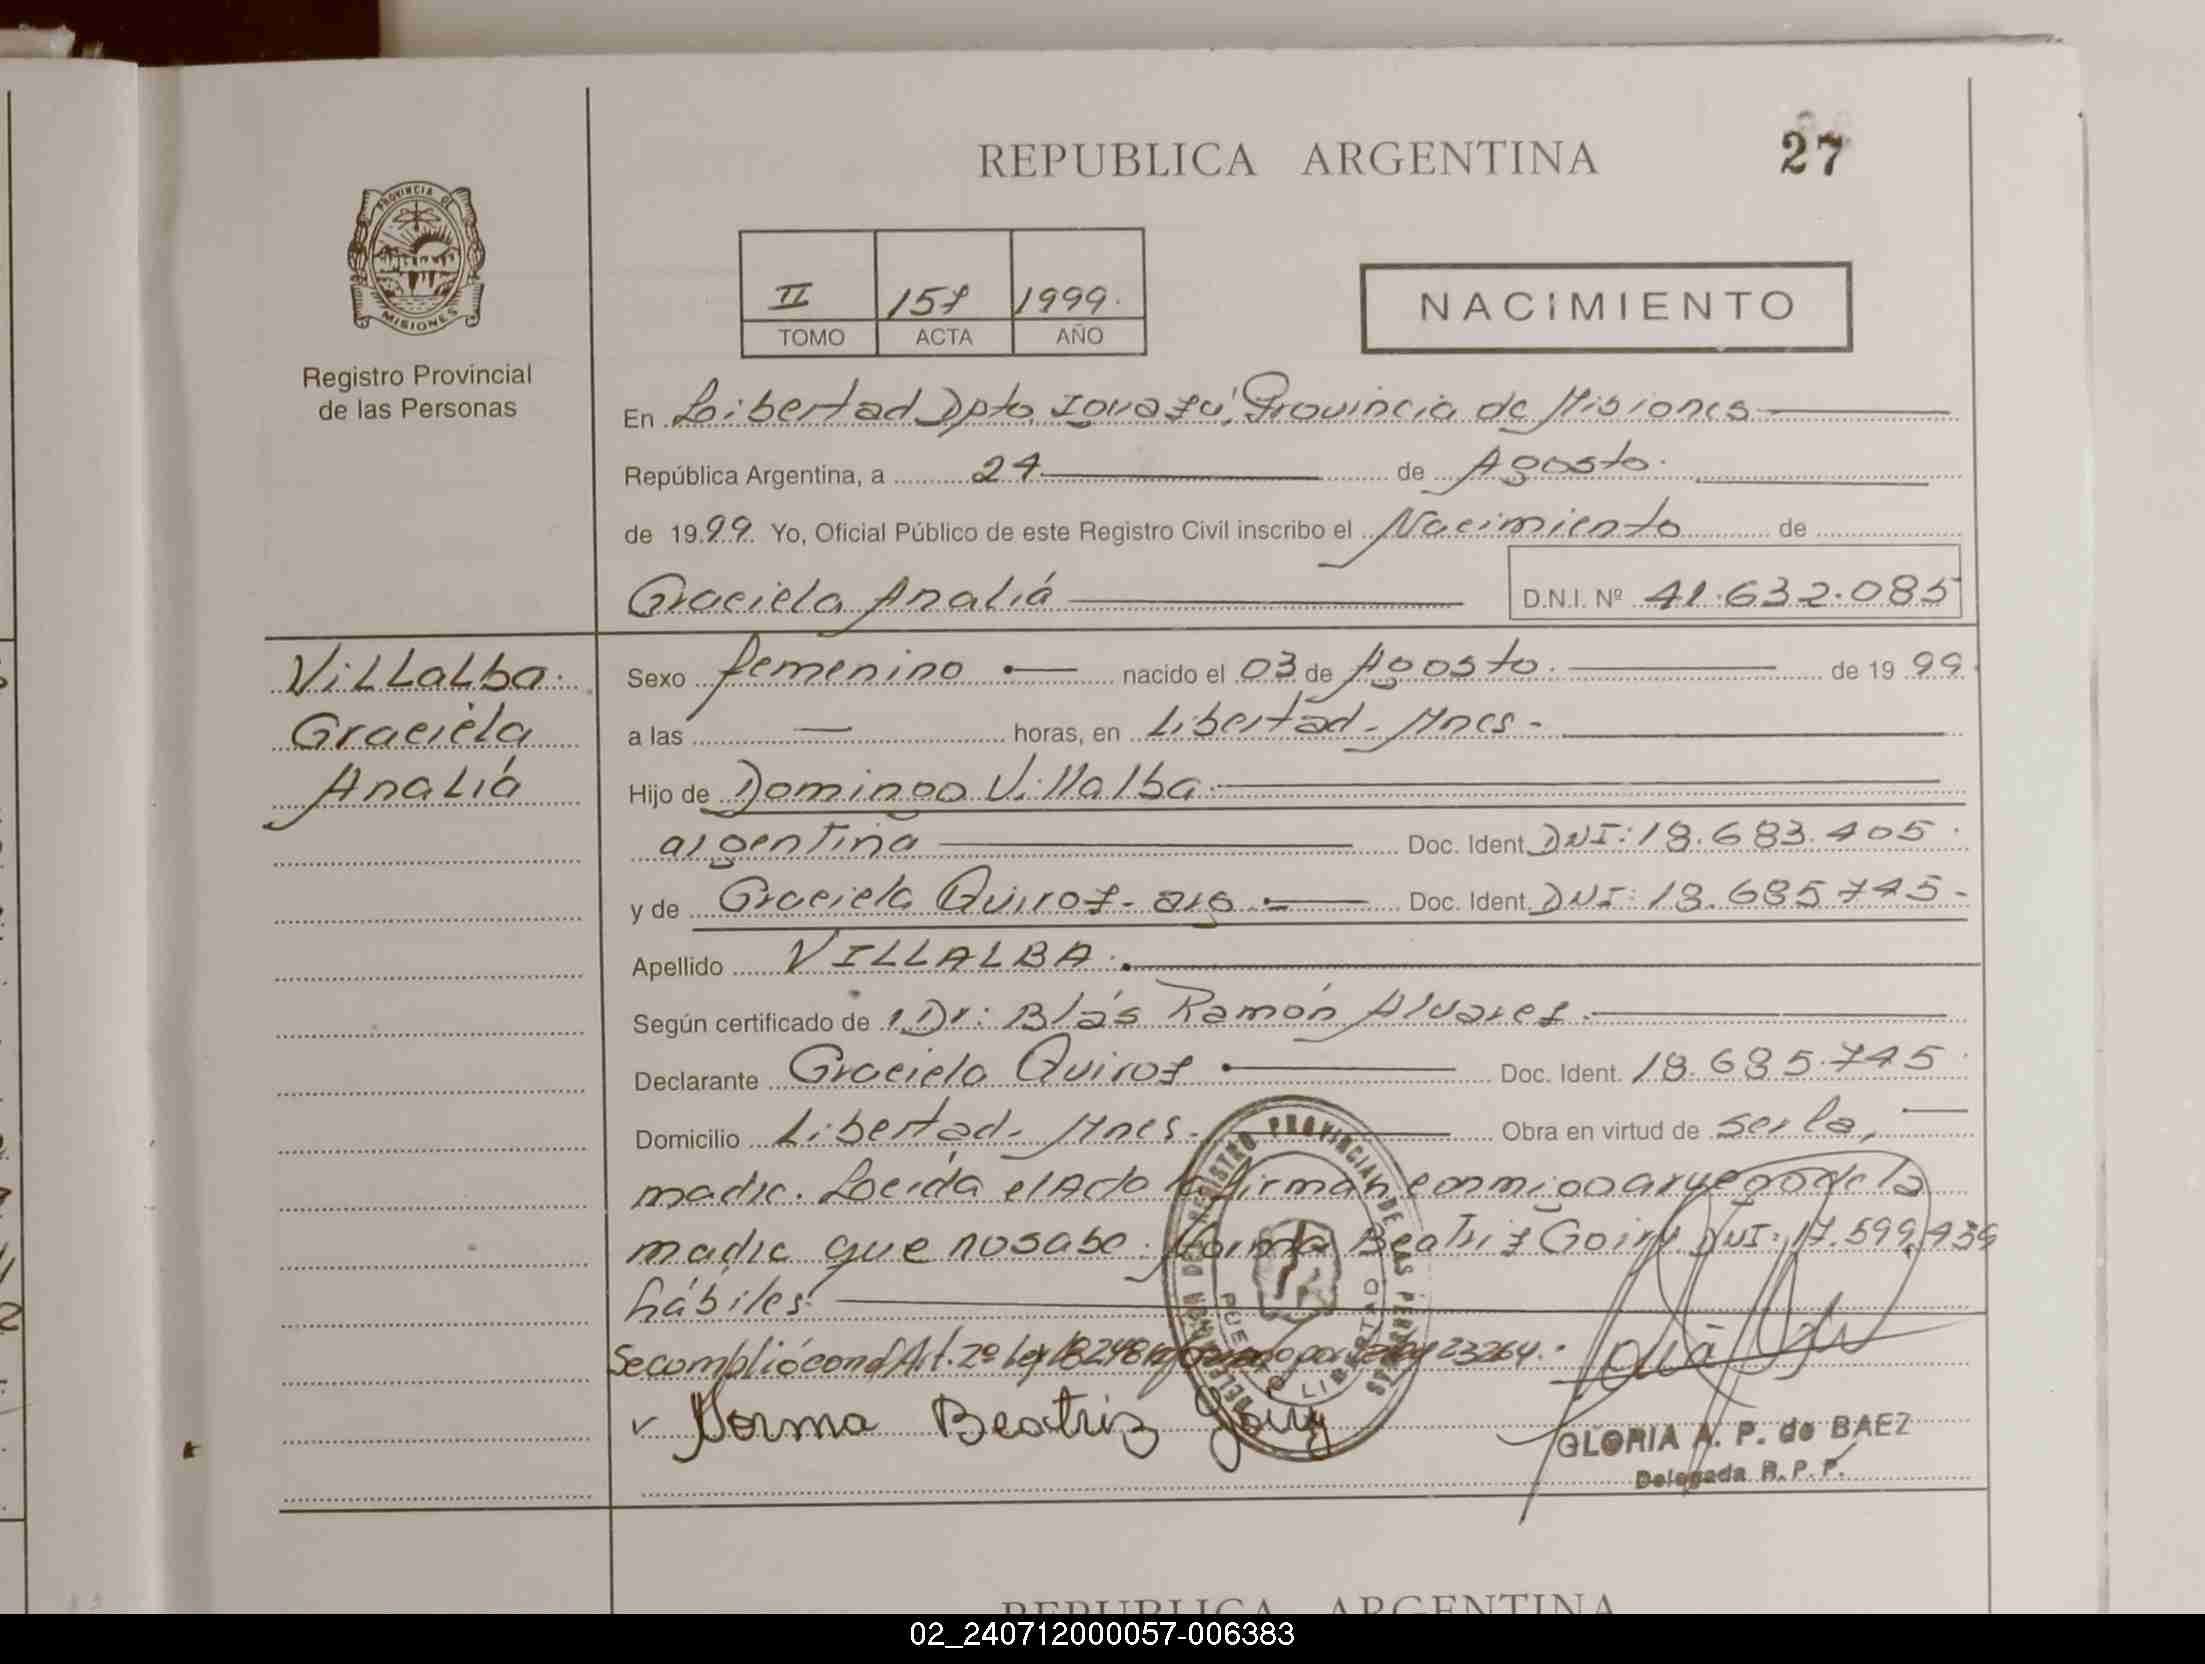 REPUBLICA ARGENTINA
27
PROVINCIA DE
MISIONES
Registro Provincial
de las Personas
II 157 1999.
TOMO ACTA AÑO
NACIMIENTO
En Libertad Dpto. Iguazú, Provincia de Misiones
República Argentina, a 24 de Agosto.
de 1999. Yo, Oficial Público de este Registro Civil inscribo el Nacimiento de
Graciela Analiá D.N.I. Nº 41.632.085
Villalba.
Graciela
Analiá
Sexo femenino. nacido el 03 de Agosto. de 1999.
a las — horas, en Libertad - Mnes -
Hijo de Domingo Villalba.
argentina Doc. Ident. DNI: 18.683.405.
y de Graciela Quiroz - arg. Doc. Ident. DNI: 18.685.745-
Apellido VILLALBA.
Según certificado de Dr: Blás Ramón Alvarez.
Declarante Graciela Quiroz. Doc. Ident. 18.685.745.
Domicilio Libertad - Mnes. Obra en virtud de ser la,
madre. Loeida el Acto la firman conmigo a ruego de la
madre que no sabe. Norma Beatriz Goiry DNI: 17.599.439
hábiles.
Se complió con el Art. 2º Ley 18248 por Ley 23264.
Norma Beatriz Goiry
DELEGACION DEL REGISTRO PROVINCIAL DE LAS PERSONAS
PUERTO LIBERTAD
GLORIA A. P. de BAEZ
Delegada R. P. P.
REPUBLICA ARGENTINA
02_240712000057-006383